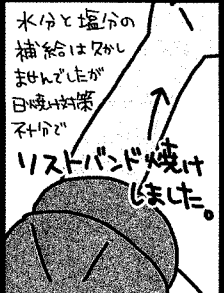 水分と塩分の
補給は欠かし
ませんでしたが
日焼け対策
不十分で
リストバンド焼け
しました。